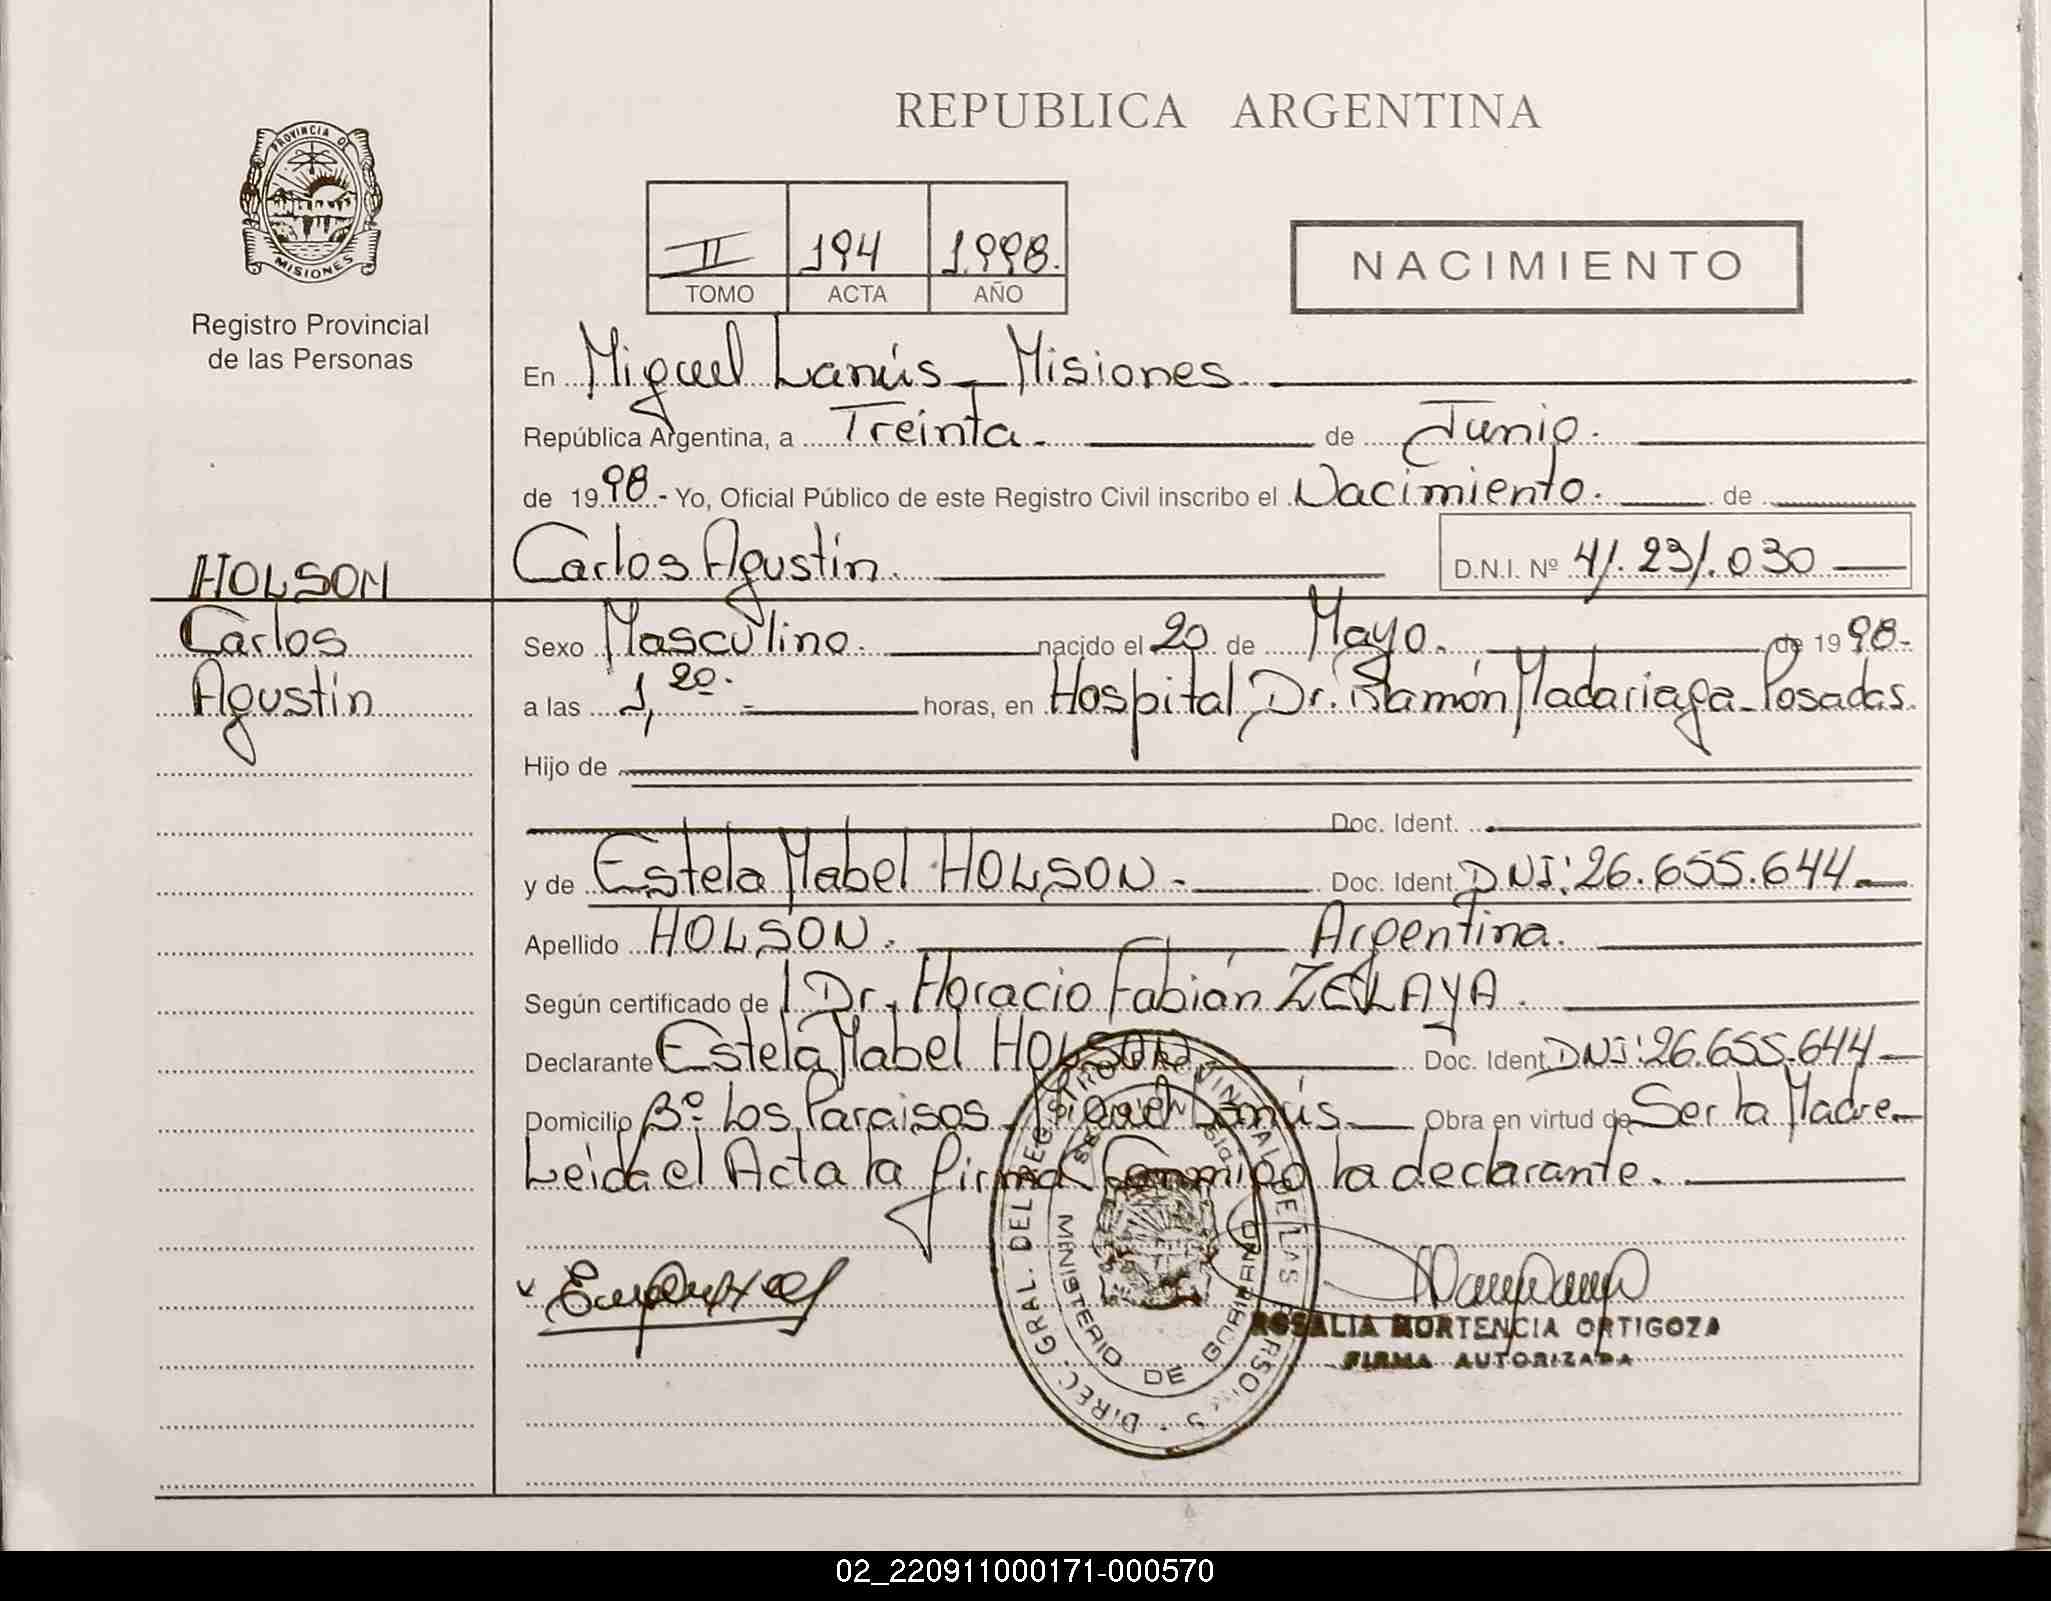 REPUBLICA ARGENTINA
PROVINCIA DE
MISIONES
Registro Provincial
de las Personas
II 194 1.998.
TOMO ACTA AÑO
NACIMIENTO
En Miguel Lanús - Misiones
República Argentina, a Treinta.- de Junio.
de 1998.- Yo, Oficial Público de este Registro Civil inscribo el Nacimiento. de
HOLSON
Carlos
Agustín
Carlos Agustín. D.N.I. Nº 41.231.030
Sexo Masculino. nacido el 20 de Mayo. de 1998.-
a las 1,20.- horas, en Hospital Dr. Ramón Madariaga - Posadas.
Hijo de
Doc. Ident.
y de Estela Mabel HOLSON.- Doc. Ident. DNI: 26.655.644.-
Apellido HOLSON. Argentina.
Según certificado de Dr. Horacio Fabián ZELAYA.
Declarante Estela Mabel HOLSON Doc. Ident. DNI: 26.655.644-
Domicilio Bº Los Paraisos - Miguel Lanús. Obra en virtud de Ser la Madre-
Leida el Acta la firma Conmigo la declarante.
DIREC. GRAL. DEL REGISTRO PROVINCIAL DE LAS PERSONAS
MINISTERIO DE GOBIERNO
ROSALIA HORTENCIA ORTIGOZA
FIRMA AUTORIZADA
02_220911000171-000570